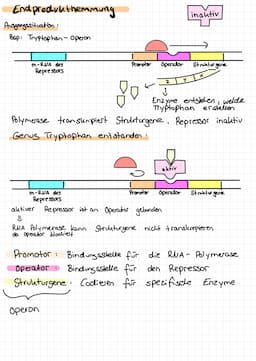 Endprodukthemmung
inaktiv
Ausgangssituation:
Bsp: Tryptophan-Operon
m-RNA des Repressors
Promotor
Operator
Strukturgene
Enzyme entstehen, welche
Tryptophan erstellen
Polymerase transkripiert Strukturgene, Repressor inaktiv
Genug Tryptophan entstanden:
aktiv
m-RNA des Repressors
Promotor
Operator
Strukturgene
aktiver Repressor ist an Operator gebunden
RNA Polymerase kann Strukturgene nicht transkripieren
da Operator blockiert
Promotor: Bindungsstelle für die RNA-Polymerase
Operator: Bindungsstelle für den Repressor
Strukturgene: Codieren für spezifische Enzyme
Operon